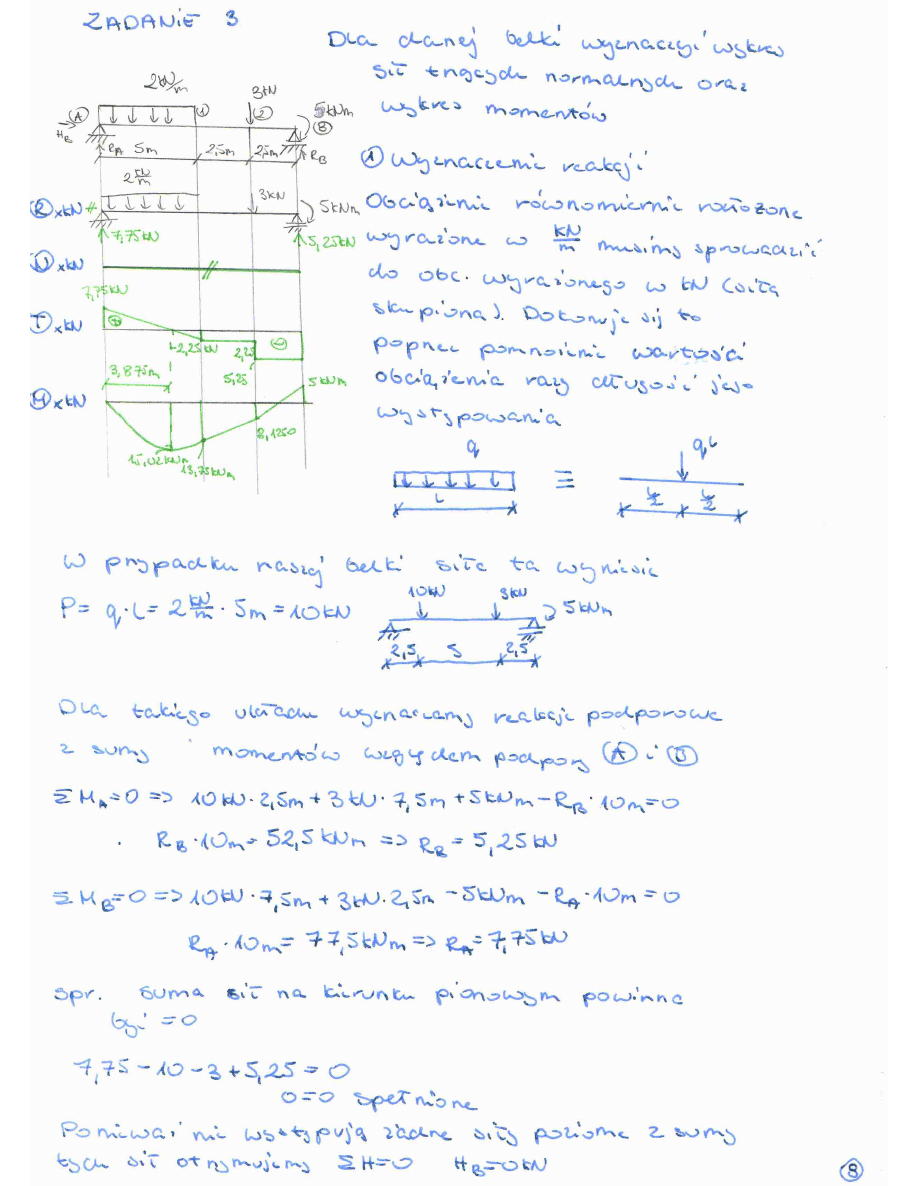 ZADANIE 3
Dla danej belki wyznaczyć wykres
sił tnących normalnych oraz
wykres momentów
2 kN/m
3kN
5kNm
A
1
2
B
H_B
R_A 5m
2,5m
2,5m
R_B
① Wyznaczenie reakcji
2 kN/m
3kN
5kNm
R xkN
7,75kN
5,25kN
Obciążenie równomiernie rozłożone
wyrażone w kN/m musimy sprowadzić
do obc. wyrażonego w kN (siła
skupiona). Dokonuje się to
poprzez pomnożenie wartości
obciążenia razy długość jego
występowania
N xkN
7,75kN
T xkN
⊕
-2,25kN
2,25
⊖
5,25
3,875m
5kNm
M xkN
15,02kNm
13,75kNm
8,1250
q
L
≡
q·L
L/2 L/2
W przypadku naszej belki siła ta wyniesie
P = q·L = 2 kN/m · 5m = 10kN
10kN
3kN
5kNm
2,5 5 2,5
Dla takiego układu wyznaczamy reakcje podporowe
z sumy momentów względem podpory Ⓐ i Ⓑ
ΣM_A=0 => 10kN·2,5m + 3kN·7,5m + 5kNm - R_B·10m = 0
R_B·10m = 52,5kNm => R_B = 5,25kN
ΣM_B=0 => 10kN·7,5m + 3kN·2,5m - 5kNm - R_A·10m = 0
R_A·10m = 77,5kNm => R_A = 7,75kN
spr. suma sił na kierunku pionowym powinna
być = 0
7,75 - 10 - 3 + 5,25 = 0
0=0 spełnione
Ponieważ nie występują żadne siły poziome z sumy
tych sił otrzymujemy ΣH=0 H_B=0kN
⑧